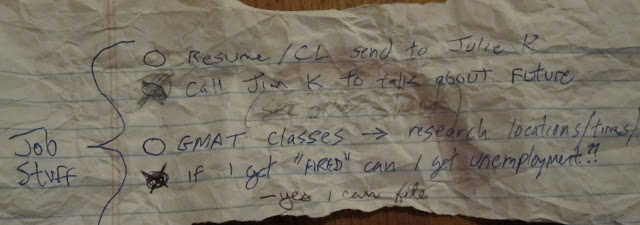 Resume/CL send to Julie K
Call Jim K to talk about Future
see
GMAT classes → research locations/times/
Job
Stuff
if I get "FIRED" can I get unemployment?!
- yes I can file